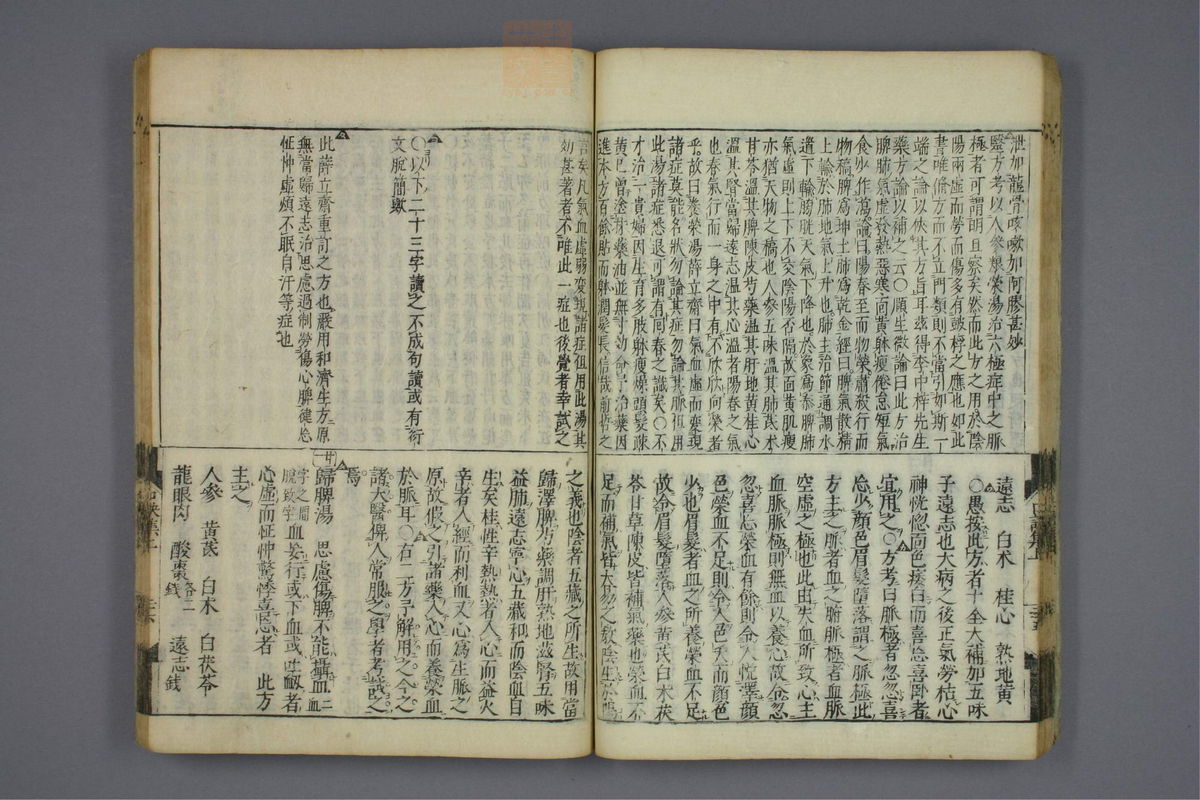 泄加龍骨咳嗽加阿膠甚妙
醫方考以人參養榮湯治六極症中之脈
極者可謂明且察矣然而此方之用於陰
陽兩虛而勞而傷多有皷桴之應也如此
書唯脩方而不立門類則不當引如斯一
端之論以狹其方旨耳或得李中梓先生
藥方論以補之云〇願生微論曰此方治
脾肺氣虛發熱惡寒面黃躰瘦倦怠短氣
食少作瀉讖曰陽春至而物榮肅殺行而
物槁脾為坤土肺為乾金經曰脾氣散精
上輸於肺地氣上升也肺主治節通調水
道下輸膀胱天氣下降也於象為泰脾肺
氣虛則上下不交陰陽否隔故面黃肌瘦
亦猶天物之槁也人參五味溫其肺芪朮
甘苓溫其脾陳皮芍藥溫其肝地黃桂心
溫其腎當歸遠志溫其心溫者陽春之氣
也春氣行而一身之中有不欣欣向榮者
乎故曰養榮湯薛立齋曰氣血虛而變現
諸症莫能名狀勿論其症勿論其脈徂用
此湯諸症悉退可謂有回春之識矣〇不
才治一貴婦因生育多肢躰瘦燥頭髮踈
黃已曾塗牙藥油並無寸効命予治藥因
進本方百餘貼而躰潤髮長信哉前哲之
遠志 白朮 桂心 熟地黃
〇愚按此方者十全大補加五味
子遠志也大病之後正氣勞怯心
神恍惚面色痿白而喜忘喜臥者
宜用之〇方考曰脈極者忽忽喜
忘少顏色眉髮墮落謂之脈極此
方主之脈者血之腑脈極者血脈
空虛之極也此由失血所致心主
血脈脈極則無血以養心故令忽
忽喜忘榮血有餘則令人悅澤顏
色榮血不足則令人色夭而顏色
少也眉髮者血之所養榮血不足
故令眉髮墮落人參黃芪白朮茯
苓甘草陳皮皆補氣藥也榮血不
足而補氣皆大忽之故陰生於陽
言矣凡氣血虛弱変現諸症徂用此湯其
効甚著者不唯此一症也後覺者幸試之
〇以下二十三字讀之不成句讀或有衍
文脫簡歟
此薛立齋重訂之方也嚴用和濟生方原
無當歸遠志治思慮過制勞傷心脾健忘
怔忡虛煩不眠自汗等症也
之義也陰者五藏之所生故用當
歸澤脾芍藥調肝熟地滋腎五味
益肺遠志寧心五藏和而陰血自
生矣桂性辛熱熱者入心而益火
辛者入經而利血又心為生脈之
原故假之引諸藥入心而養榮血
於脈耳〇右二方予解用之今之
諸大醫俾人常服之學者考試之
焉
歸脾湯 思慮傷脾不能攝血二
字之間脫致字血妄行或下血或吐衂者
心虛而怔忡驚悸喜忘者 此方
主之
人參 黃芪 白朮 白茯苓
龍眼肉 酸棗各二錢 遠志錢